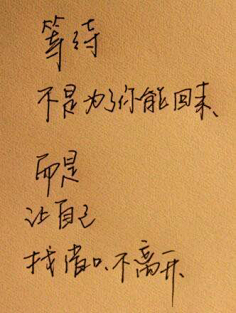 等待
不是为了你能回来、
而是
让自己
找借口、不离开